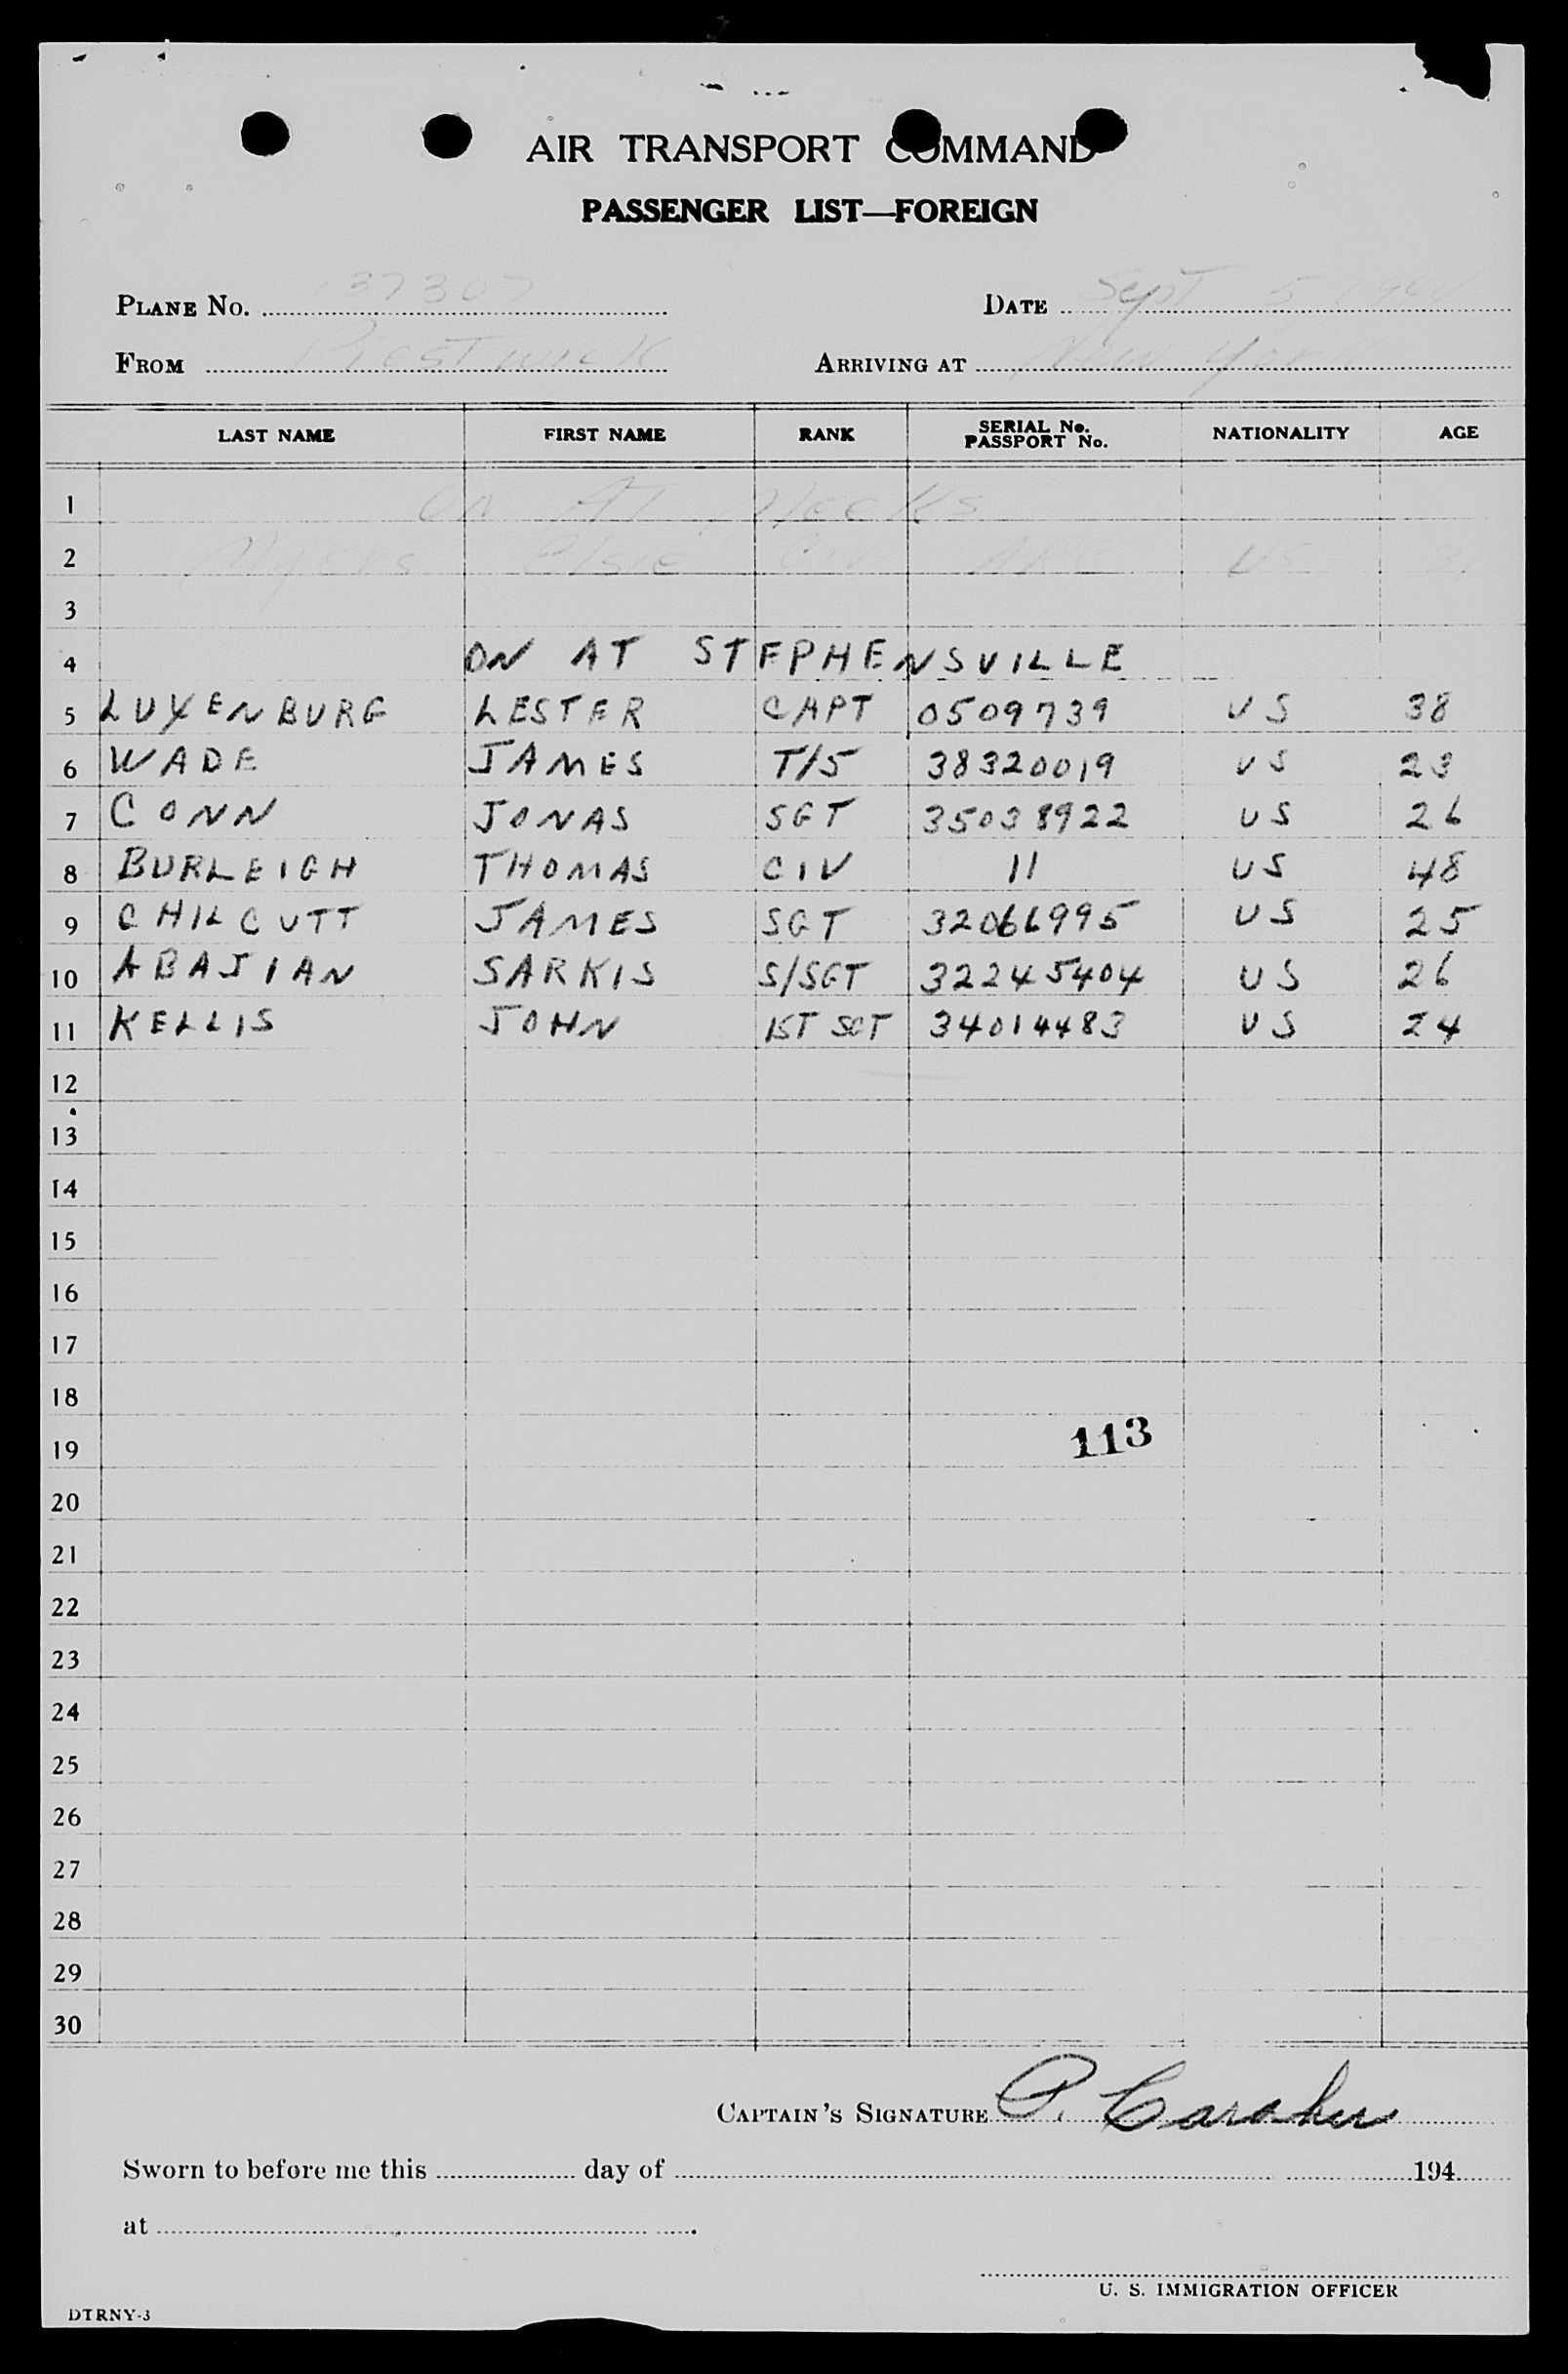 AIR TRANSPORT COMMAND
PASSENGER LIST—FOREIGN
PLANE No. 37307 DATE Sept 5
FROM Prestwick ARRIVING AT New York
LAST NAME FIRST NAME RANK SERIAL No. PASSPORT No. NATIONALITY AGE
1 On At Meeks
2 Myers Elsie Civ US
3
4 ON AT STEPHENSVILLE
5 LUXENBURG LESTER CAPT 0509739 US 38
6 WADE JAMES T/5 38320019 US 23
7 CONN JONAS SGT 35038922 US 26
8 BURLEIGH THOMAS CIV 11 US 48
9 CHILCUTT JAMES SGT 32066995 US 25
10 ABAJIAN SARKIS S/SGT 32245404 US 26
11 KELLIS JOHN 1ST SGT 34014483 US 24
12
13
14
15
16
17
18
113
19
20
21
22
23
24
25
26
27
28
29
30
CAPTAIN'S SIGNATURE P. Caraher
Sworn to before me this day of 194
at
U. S. IMMIGRATION OFFICER
DTRNY-3